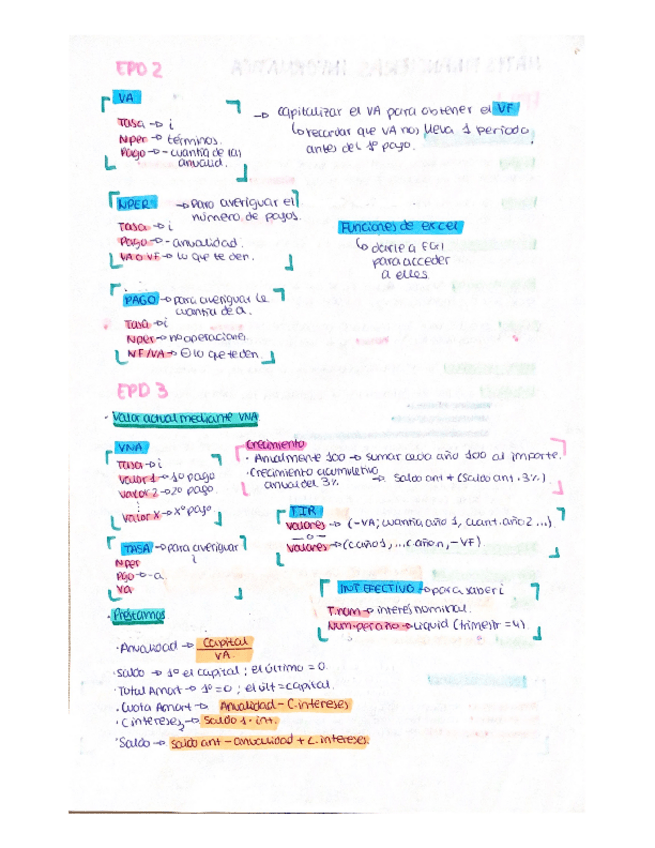 EPD 2
VA
Tasa → i
Nper → términos.
Pago → - cuantía de las
anualid.
→ Capitalizar el VA para obtener el VF
↳ recordar que VA nos lleva 1 periodo
antes del 1º pago.
NPER → Para averiguar el
número de pagos.
Tasa → i
Pago → - anualidad.
VA o VF → lo que te den.
Funciones de excel
↳ darle a F(x)
para acceder
a ellas
PAGO → para averiguar la
cuantía de a.
Tasa → i
Nper → no operaciones.
VF/VA → ⊖ lo que te den
EPD 3
· Valor actual mediante VNA
VNA
Tasa → i
Valor 1 → 1º pago
Valor 2 → 2º pago
Valor X → Xº pago
Crecimiento
· Anualmente 100 → sumar cada año 100 al importe.
· Crecimiento acumulativo
anual del 3% → Saldo ant + (Saldo ant · 3%).
TIR
Valores → (-VA; cuantía año 1, cuant. año 2 ...)
-o-
Valores → (c.año 1, ... c.año n, -VF)
TASA → para averiguar
i
Nper
Pgo → -a
Va
INT EFECTIVO → para saber i
T.nom → interés nominal.
Num.per año → Liquid (trimestr = 4).
· Préstamos
· Anualidad → Capital
VA
· Saldo → 1º el capital ; el último = 0
· Total Amort → 1º = 0 ; el ult = capital.
· Cuota Amort → Anualidad - C.intereses
· C intereses → Saldo 1 · int.
· Saldo → Saldo ant - anualidad + C.intereses.